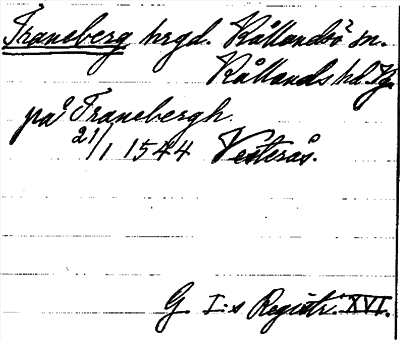 Traneberg hrgd. Kållandsö sn.
Kållands hd. Vg.
på Tranebergh.
21/1 1544 Vesterås.
G. I:s Registr. XVI.